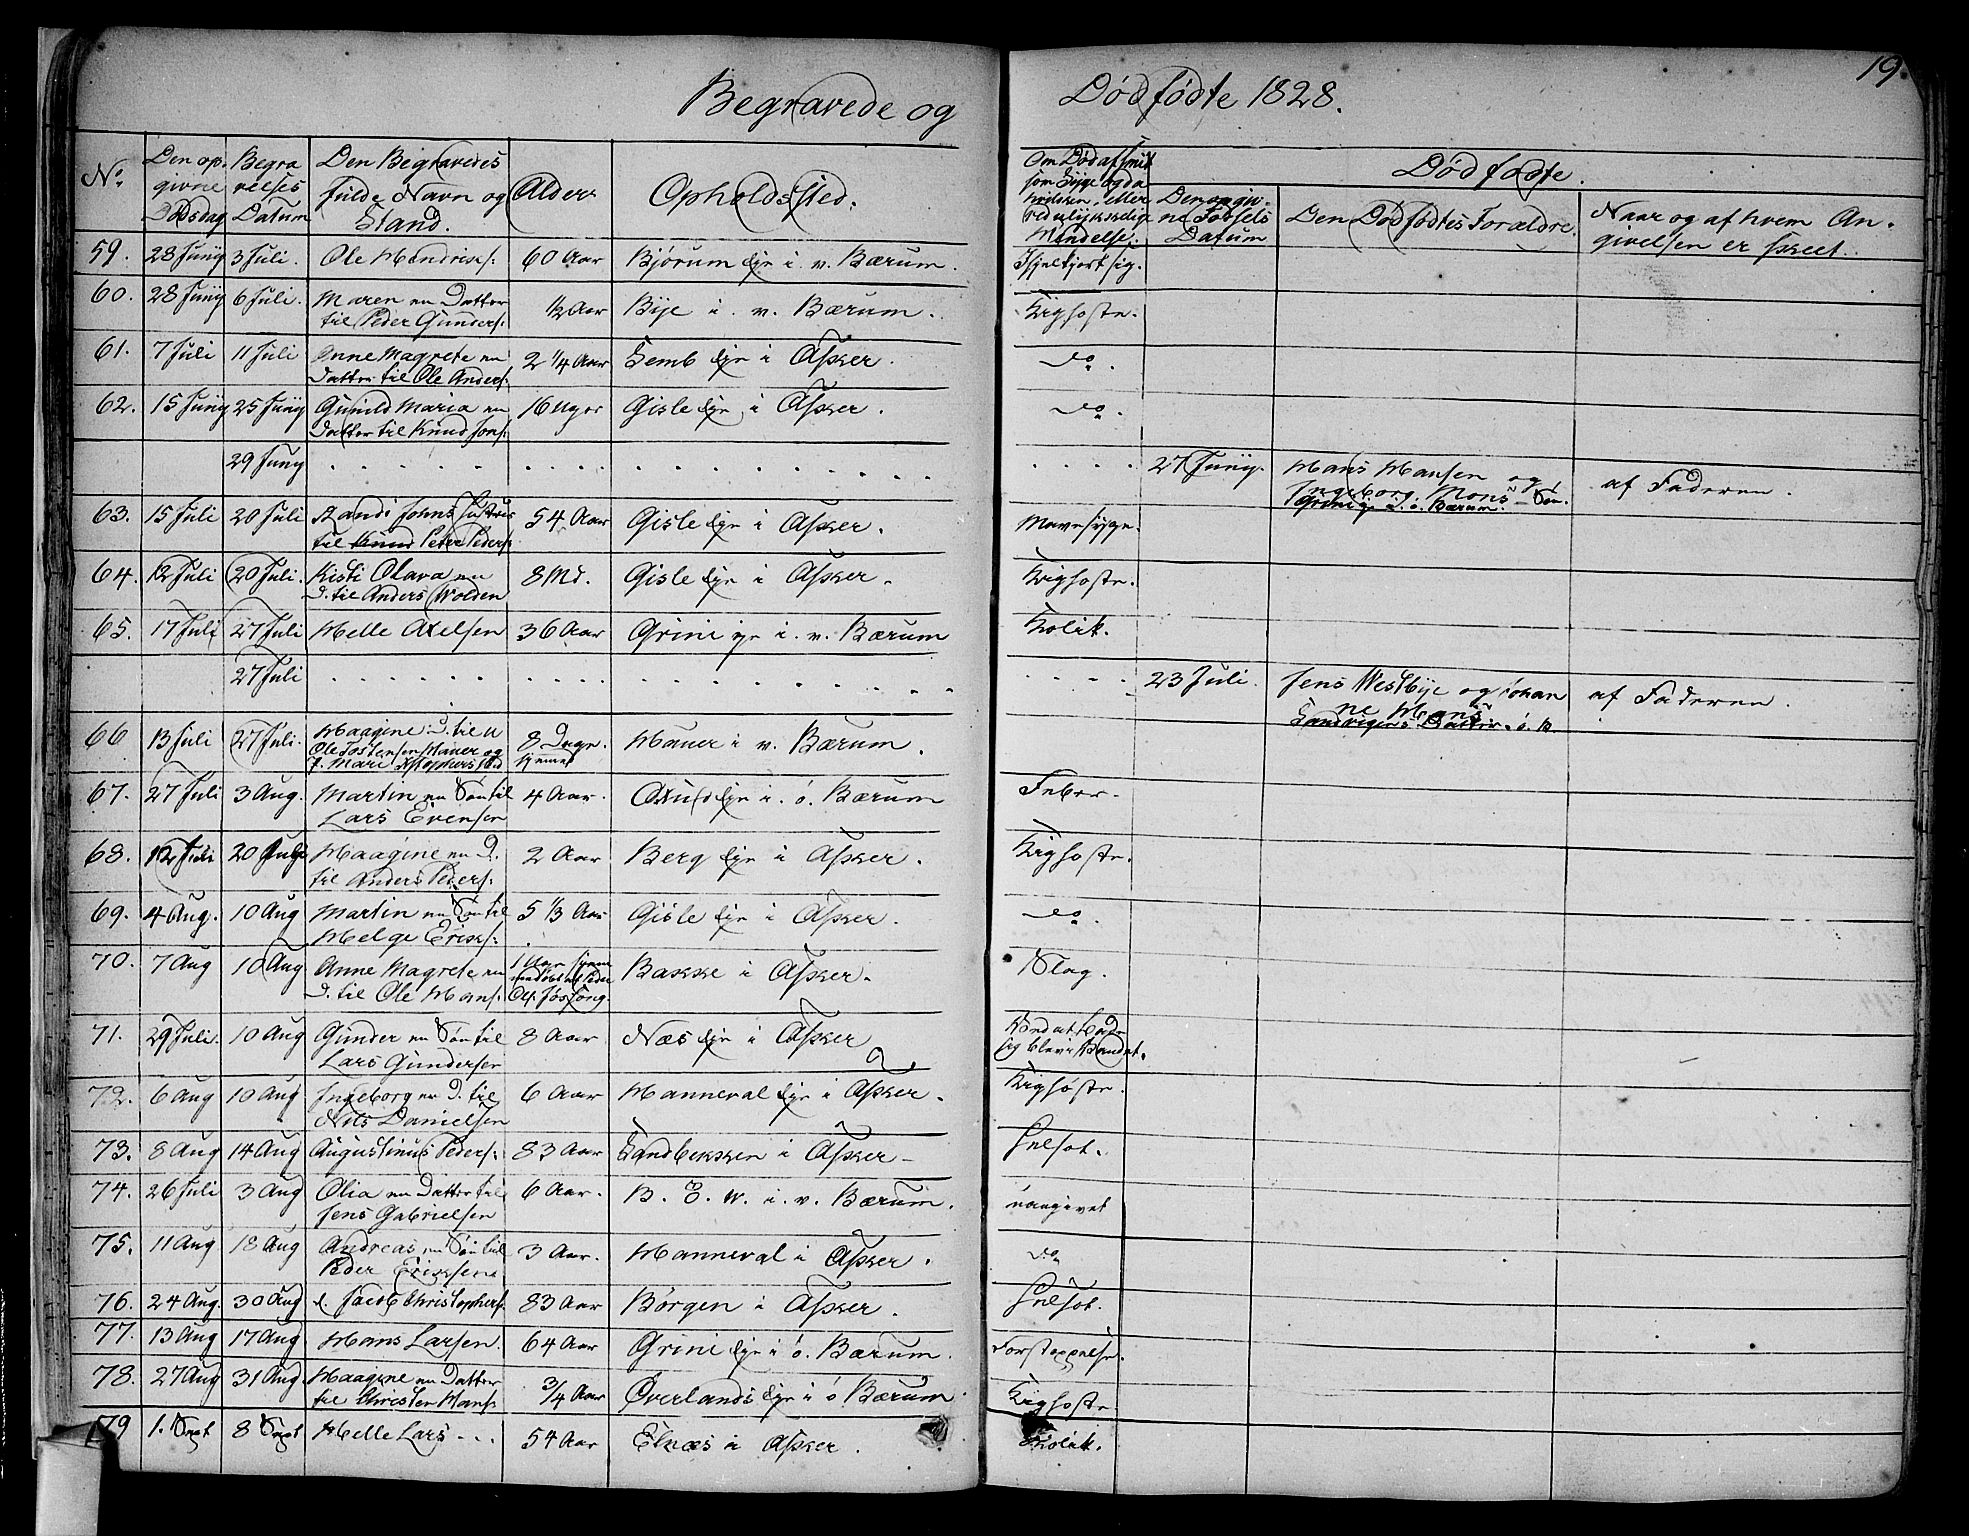 19.
Begravede og Dødfødte 1828.
No. Den op- Begra Den Begravedes Alder Opholdssted. Om Død af smit Dødfødte.
givne velses fulde Navn og som Syge
Dødsdag Datum Stand. ved ulykkelige Den opgiv- Den Dødfødtes Forældre. Naar og af hvem An-
Hændelse. ne Fødsels Datum givelsen er skeet.
59. 28 Juny 3 Juli. Ole Hendriks: 60 Aar Bjørum eje i v. Bærum.
60. 28 Juny 6 Juli. Maren en Datter 1/2 Aar Bije i v. Bærum. Kighoste.
til Peder Gunders:
61. 7 Juli 11 Juli Anne Magrete en 2 1/4 Aar Semb eje i Asker. do.
Datter til Ole Anders:
62. 15 Juny 25 Juny Gunild Maria en 16 Uger Gisle eje i Asker. do.
Datter til Knud Jons:
29 Juny 27 Juny. Hans Hansen og af Faderen.
Ingeborg Mons
Grini i ø. Bærum. Søn.
63. 15 Juli 20 Juli Randi Johns 54 Aar Gisle eje i Asker. Mavesyge.
til Knud Peter Peders:
64. 12 Juli 20 Juli. Kisti Olava en 8 Md. Gisle eje i Asker. Kighoste.
D. til Anders Wolden
65. 17 Juli 27 Juli Helle Axelsen 36 Aar Grini eje i v. Bærum Kolik.
27 Juli 23 Juli. Jens Westbye og Johan af Faderen.
ne Hans
Sandvigen Datter ø. B.
66 13 Juli 27 Juli. Maagine D. til 8 Dage. Hauer i v. Bærum.
Ole Tostensen Hauer og hjemmed
Mari
67. 27 Juli 3 Aug. Martin en Søn til 4 Aar. eje i ø. Bærum Feber.
Lars Evensen
68. 12 Juli 20 Juli Maagine en D. 2 Aar Berg eje i Asker. Kighoste.
til Anders Peders:
69. 4 Aug. 10 Aug Martin en Søn til 5 1/3 Aar Gisle eje i Asker. do.
Helge Eriks:
70. 7 Aug 10 Aug Anne Magrete en 1 Aar hjem Bakke i Asker. Slag.
D. til Ole Hans:
71. 29 Juli. 10 Aug Gunder en Søn til 8 Aar Næs eje i Asker
Lars Gundersen
72. 6 Aug 10 Aug Ingeborg en D. til 6 Aar Hanneval eje i Asker. Kighoste.
Nils Danielsen
73. 8 Aug 14 Aug Augustinus Peders: 83 Aar Sandbekken i Asker
74. 26 Juli 3 Aug Olia en Datter til 6 Aar. B. E. W. i v. Bærum. uangivet
Jens Gabrielsen
75. 11 Aug 18 Aug Andreas en Søn til 3 Aar. Hanneval i Asker. do
Peder Eriksen
76. 24 Aug. 30 Aug Jacob Christophers: 83 Aar Børgen i Asker.
77. 13 Aug 17 Aug Hans Larsen. 64 Aar Grini eje i ø. Bærum. Forstoppelse.
78. 27 Aug 31 Aug. Maagine en Datter 3/4 Aar Øverlands eje i ø Bærum Kighoste
til Christen Hans:
79 1. Sept 8 Sept Helle Lars 54 Aar Elnæs i Asker. Kolik.